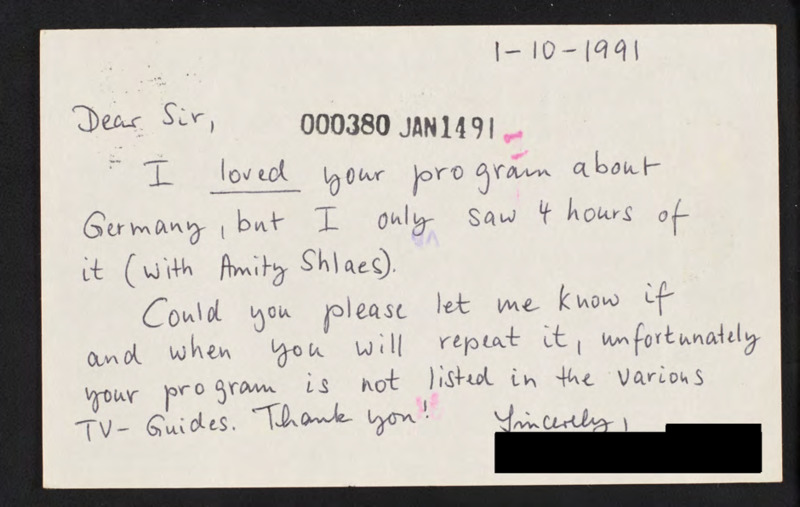 1-10-1991
Dear Sir,
000380 JAN1491
I loved your program about
Germany, but I only saw 4 hours of
it (with Amity Shlaes).
Could you please let me know if
and when you will repeat it, unfortunately
your program is not listed in the various
TV- Guides. Thank you!
Sincerely,